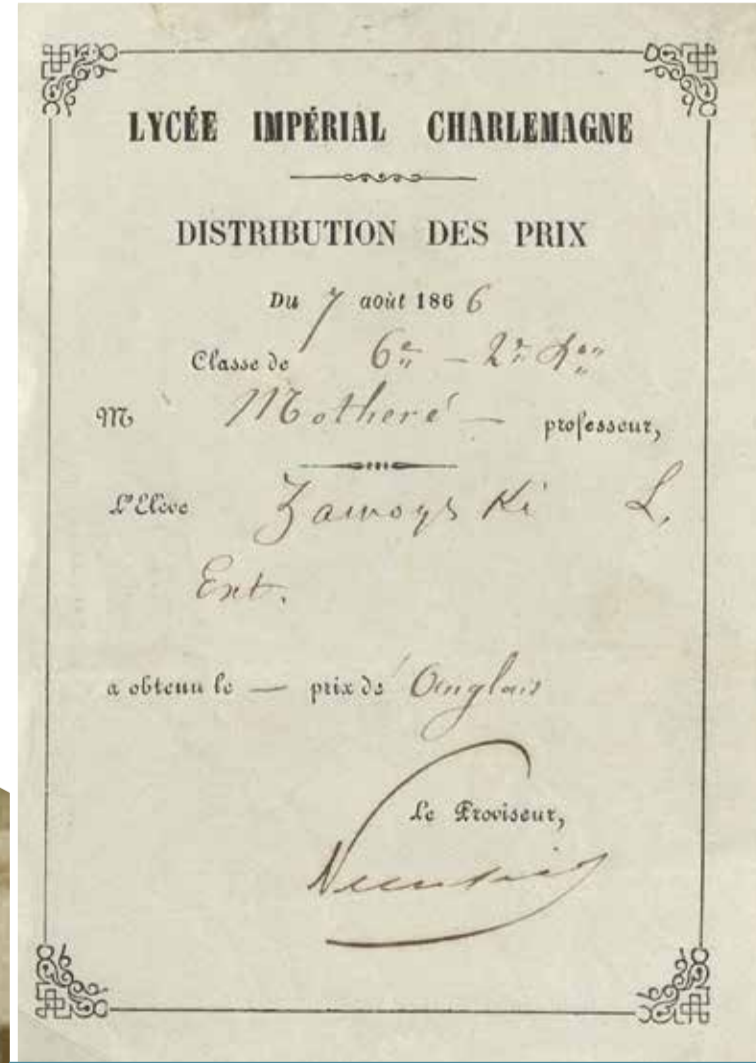 LYCÉE IMPÉRIAL CHARLEMAGNE
DISTRIBUTION DES PRIX
Du 7 août 1866
Classe de 6e - 2e Don
M Motheré - professeur,
L'Elève Zamoyski L.
Ext.
a obtenu le — prix d'Anglais
Le Proviseur,